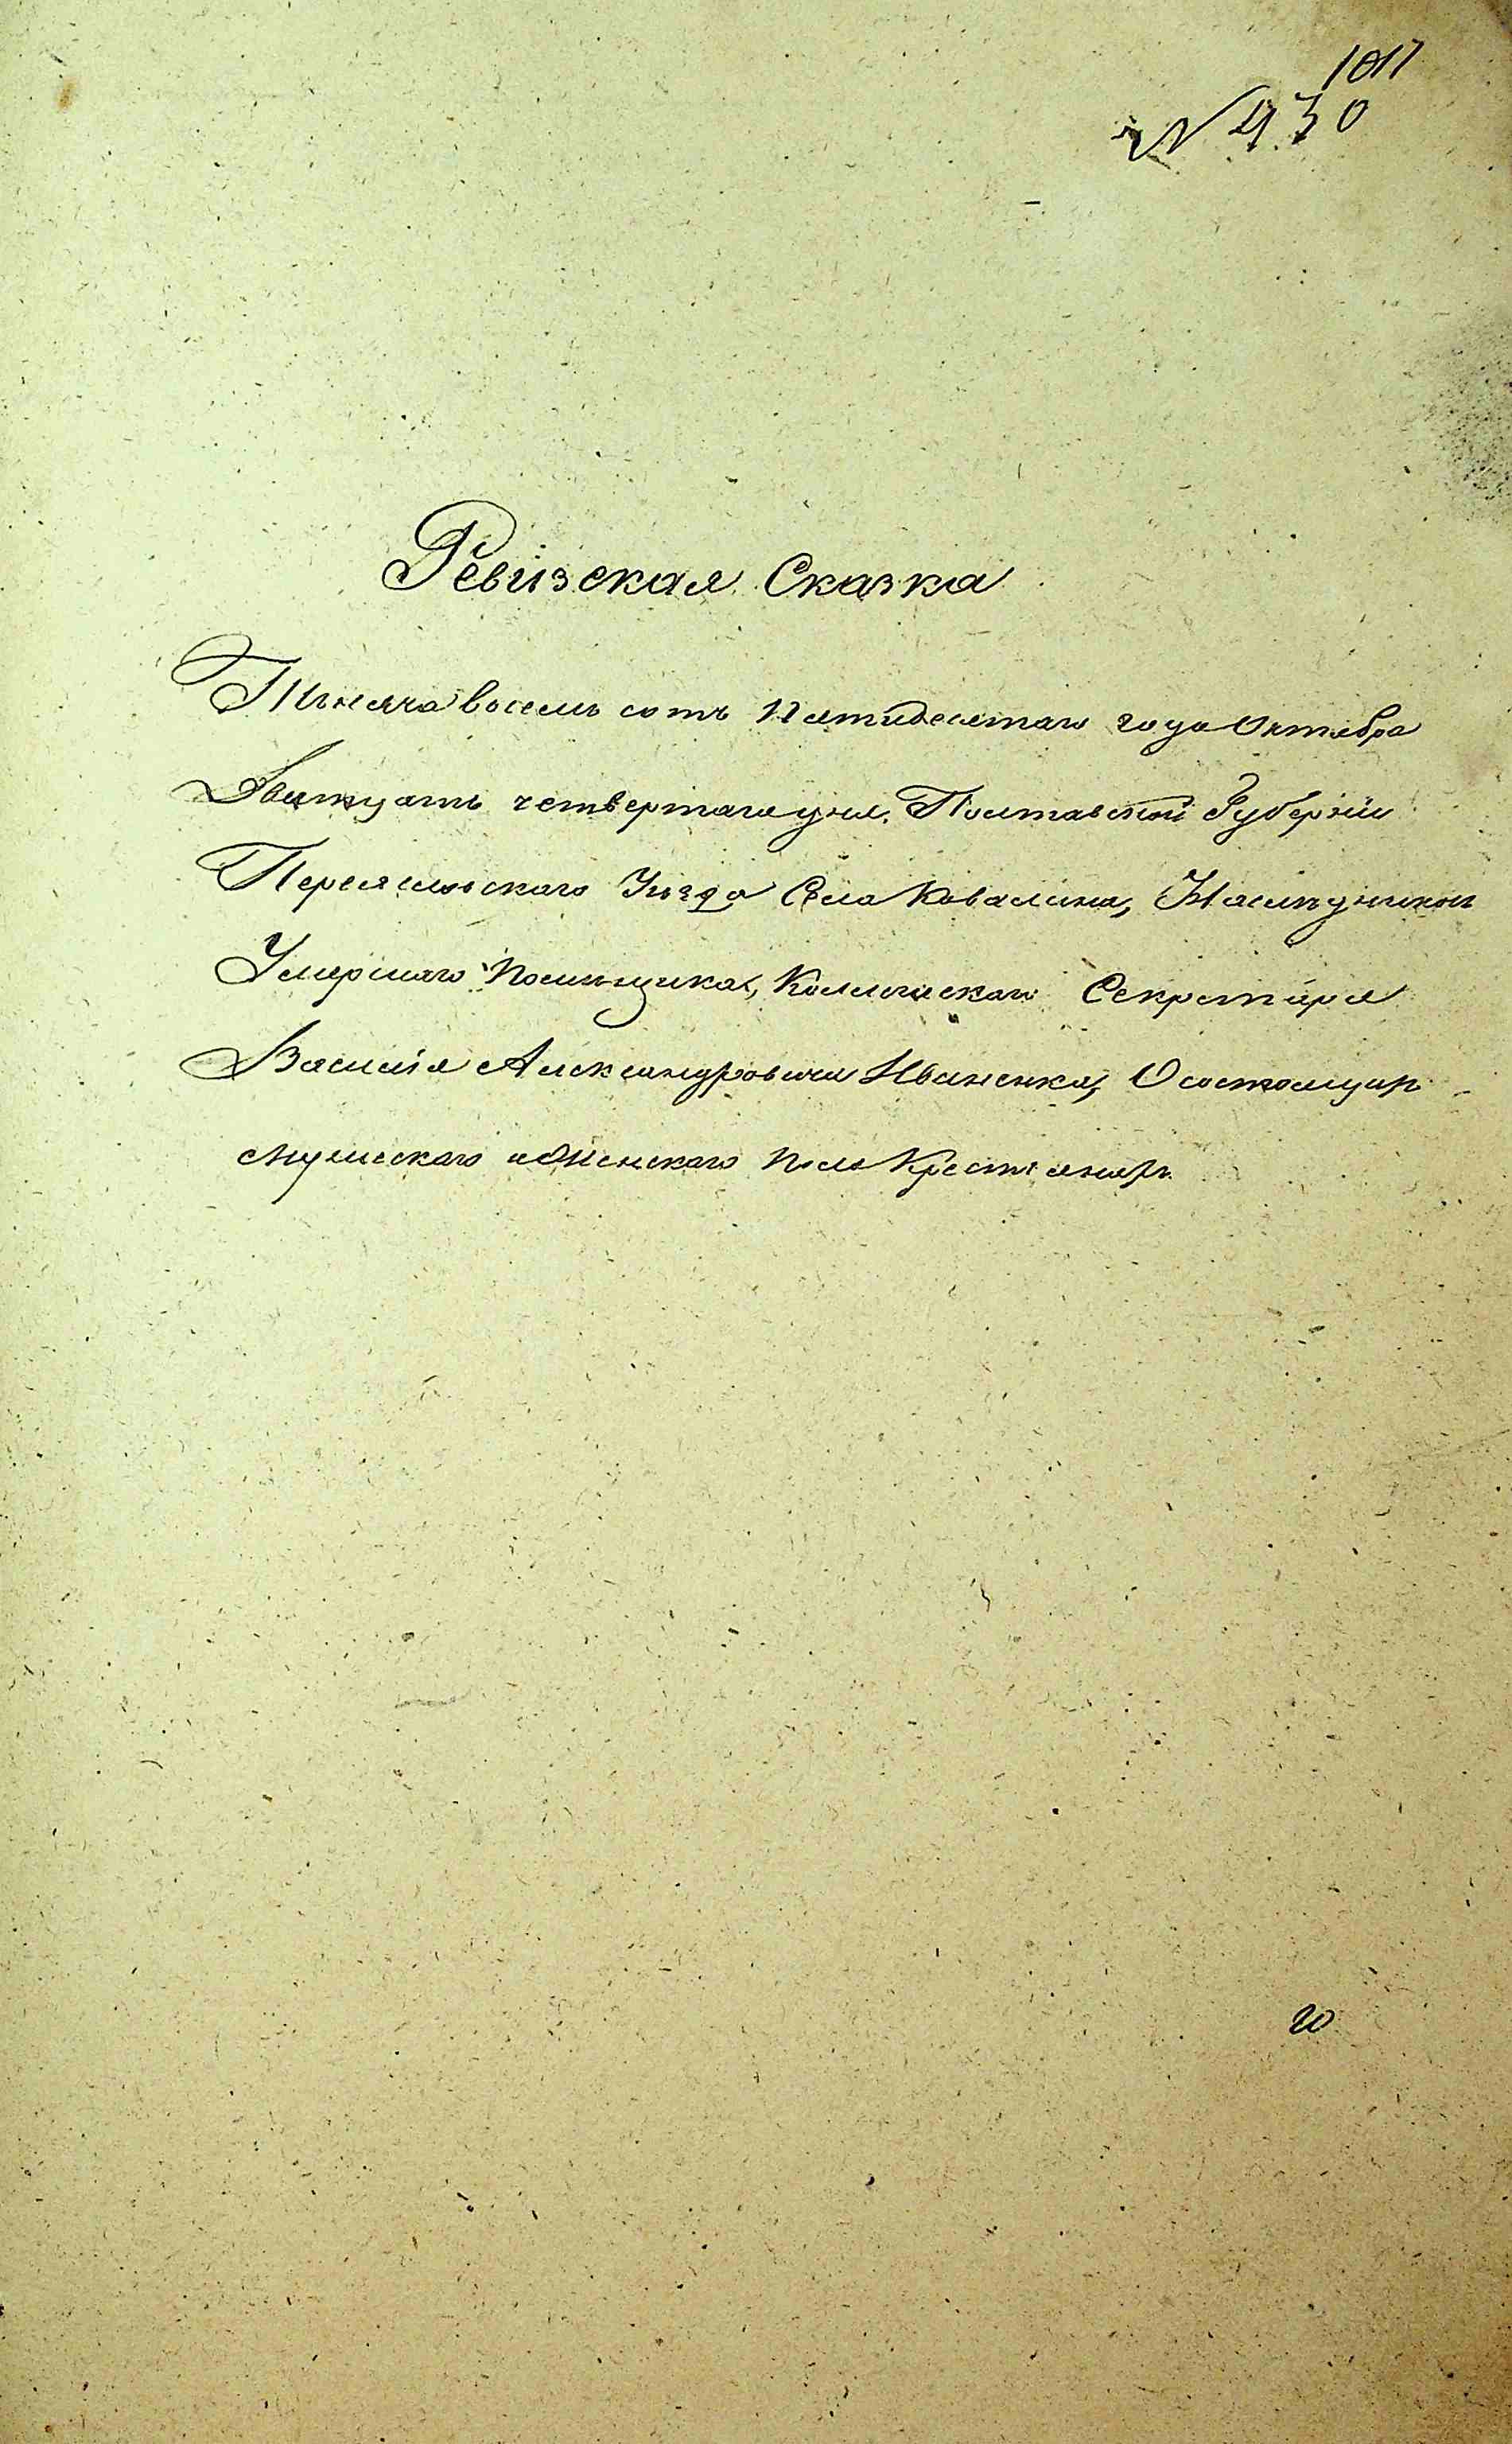 1017
№ 430
Ревизская Сказка
Тысяча восемь сотъ пятидесятаго года Октября
Двадцать четвертаго дня, Полтавской Губерніи
Переяславскаго Уѣзда Села Ковалина, Наслѣдников
Умершаго Помѣщика, Коллежскаго Секретаря
Василія Александровича Иваненка, О состоящихъ
мужескаго и женскаго пола Крестьянахъ